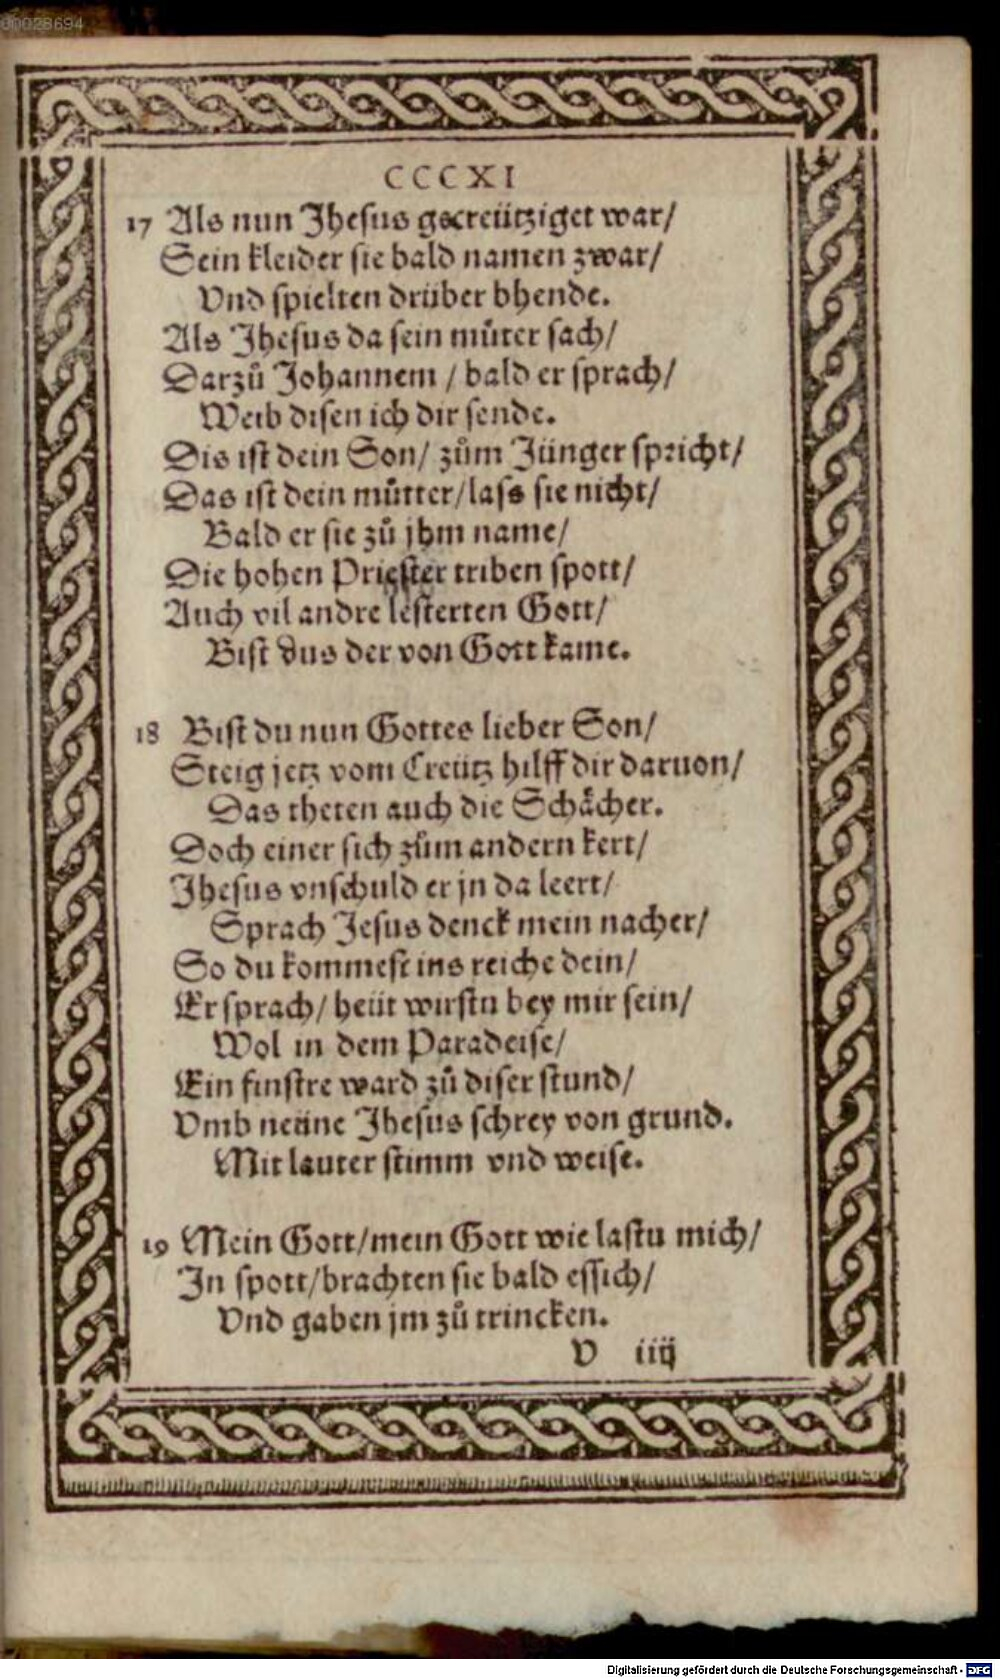 00028694
CCCXI
17 Als nun Jhesus gecreütziget war/
Sein kleider sie bald namen zwar/
Vnd spielten drüber bhende.
Als Jhesus da sein můter sach/
Darzů Johannem / bald er sprach/
Weib disen ich dir sende.
Dis ist dein Son/ zům Jünger spricht/
Das ist dein můtter/lass sie nicht/
Bald er sie zů jhm name/
Die hohen Priester triben spott/
Auch vil andre lesterten Gott/
Bist dus der von Gott kame.
18 Bist du nun Gottes lieber Son/
Steig jetz vom Creütz hilff dir daruon/
Das theten auch die Schächer.
Doch einer sich zům andern kert/
Jhesus vnschuld er jn da leert/
Sprach Jesus denck mein nacher/
So du kommest ins reiche dein/
Er sprach/ heüt wirstu bey mir sein/
Wol in dem Paradeise/
Ein finstre ward zů diser stund/
Vmb neüne Jhesus schrey von grund.
Mit lauter stimm vnd weise.
19 Mein Gott/mein Gott wie lastu mich/
In spott/brachten sie bald essich/
Vnd gaben jm zů trincken.
V iiij
Digitalisierung gefördert durch die Deutsche Forschungsgemeinschaft - DFG